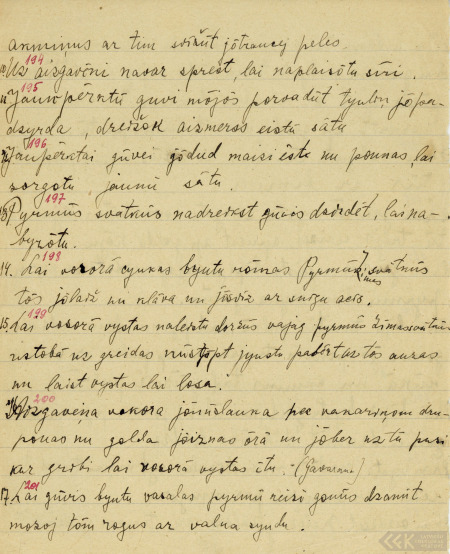 akmiņus ar tim svīžūt jōtraucej peles.
194
10. Uz aizgavēni navar sprēst, lai naplaisōtu sīri.
195
11. Jaunpērktū guvi mōjōs porvadūt tyuleņ jōpa-
dzyrda, dreižōk aizmerss eistū sātu
196
12. Jaupērktai gūvei jōdud maisi ēstu nu pounas, lai
sorgotu jaunū sātu.
197
13. Pyrmūs svātkūs nadreikst gūvis dzirdēt, lai na-
byzōtu.
198
14. Lai vosorā cyukas byutu rōmas Pyrmūs Zimas svātkūs
tōs jōlaiž nu klāva un jōsvīž ar snīgu acis.
199
15. Lai vosorā vystas naleistu dorzūs vajag pyrmūs Zimassvātkūs
ustobā uz greidas nūstypt jyustu padūt aztos auzas
nu laist vystas lai losa.
200
16. Aizgaveņa vokorā jōnūslauka pec vakariņom dru-
ponas nu golda jōiznas ōrā un jōber uz tū pusi
kur gribi lai vosorā vystas ītu. (Javsenne)
201
17. Lai gūvis byutu vasalas pyrmū reizi gonūs dzanūt
mozoj tōm rogus ar valna syudu.
LFK